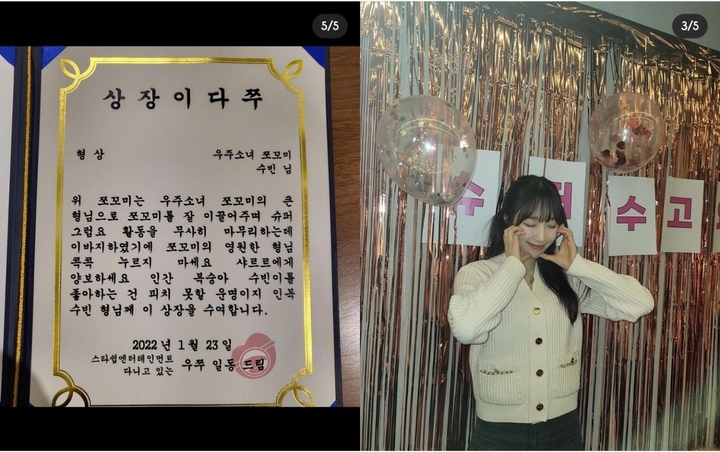 5/5
상장이다쭈
형상
우주소녀 쪼꼬미
수빈 님
위 쪼꼬미는 우주소녀 쪼꼬미의 큰
형님으로 쪼꼬미를 잘 이끌어주며 슈퍼
그럼요 활동을 무사히 마무리하는데
이바지하였기에 쪼꼬미의 영원한 형님
콕콕 누르지 마세요 샤르르에게
양보하세요 인간 복숭아 수빈이를
좋아하는 건 피치 못할 운명이지 인꼭
수빈 형님께 이 상장을 수여합니다.
2022 년 1 월 23 일
스타쉽엔터테인먼트
다니고 있는 우쭈 일동 드림
3/5
수 고